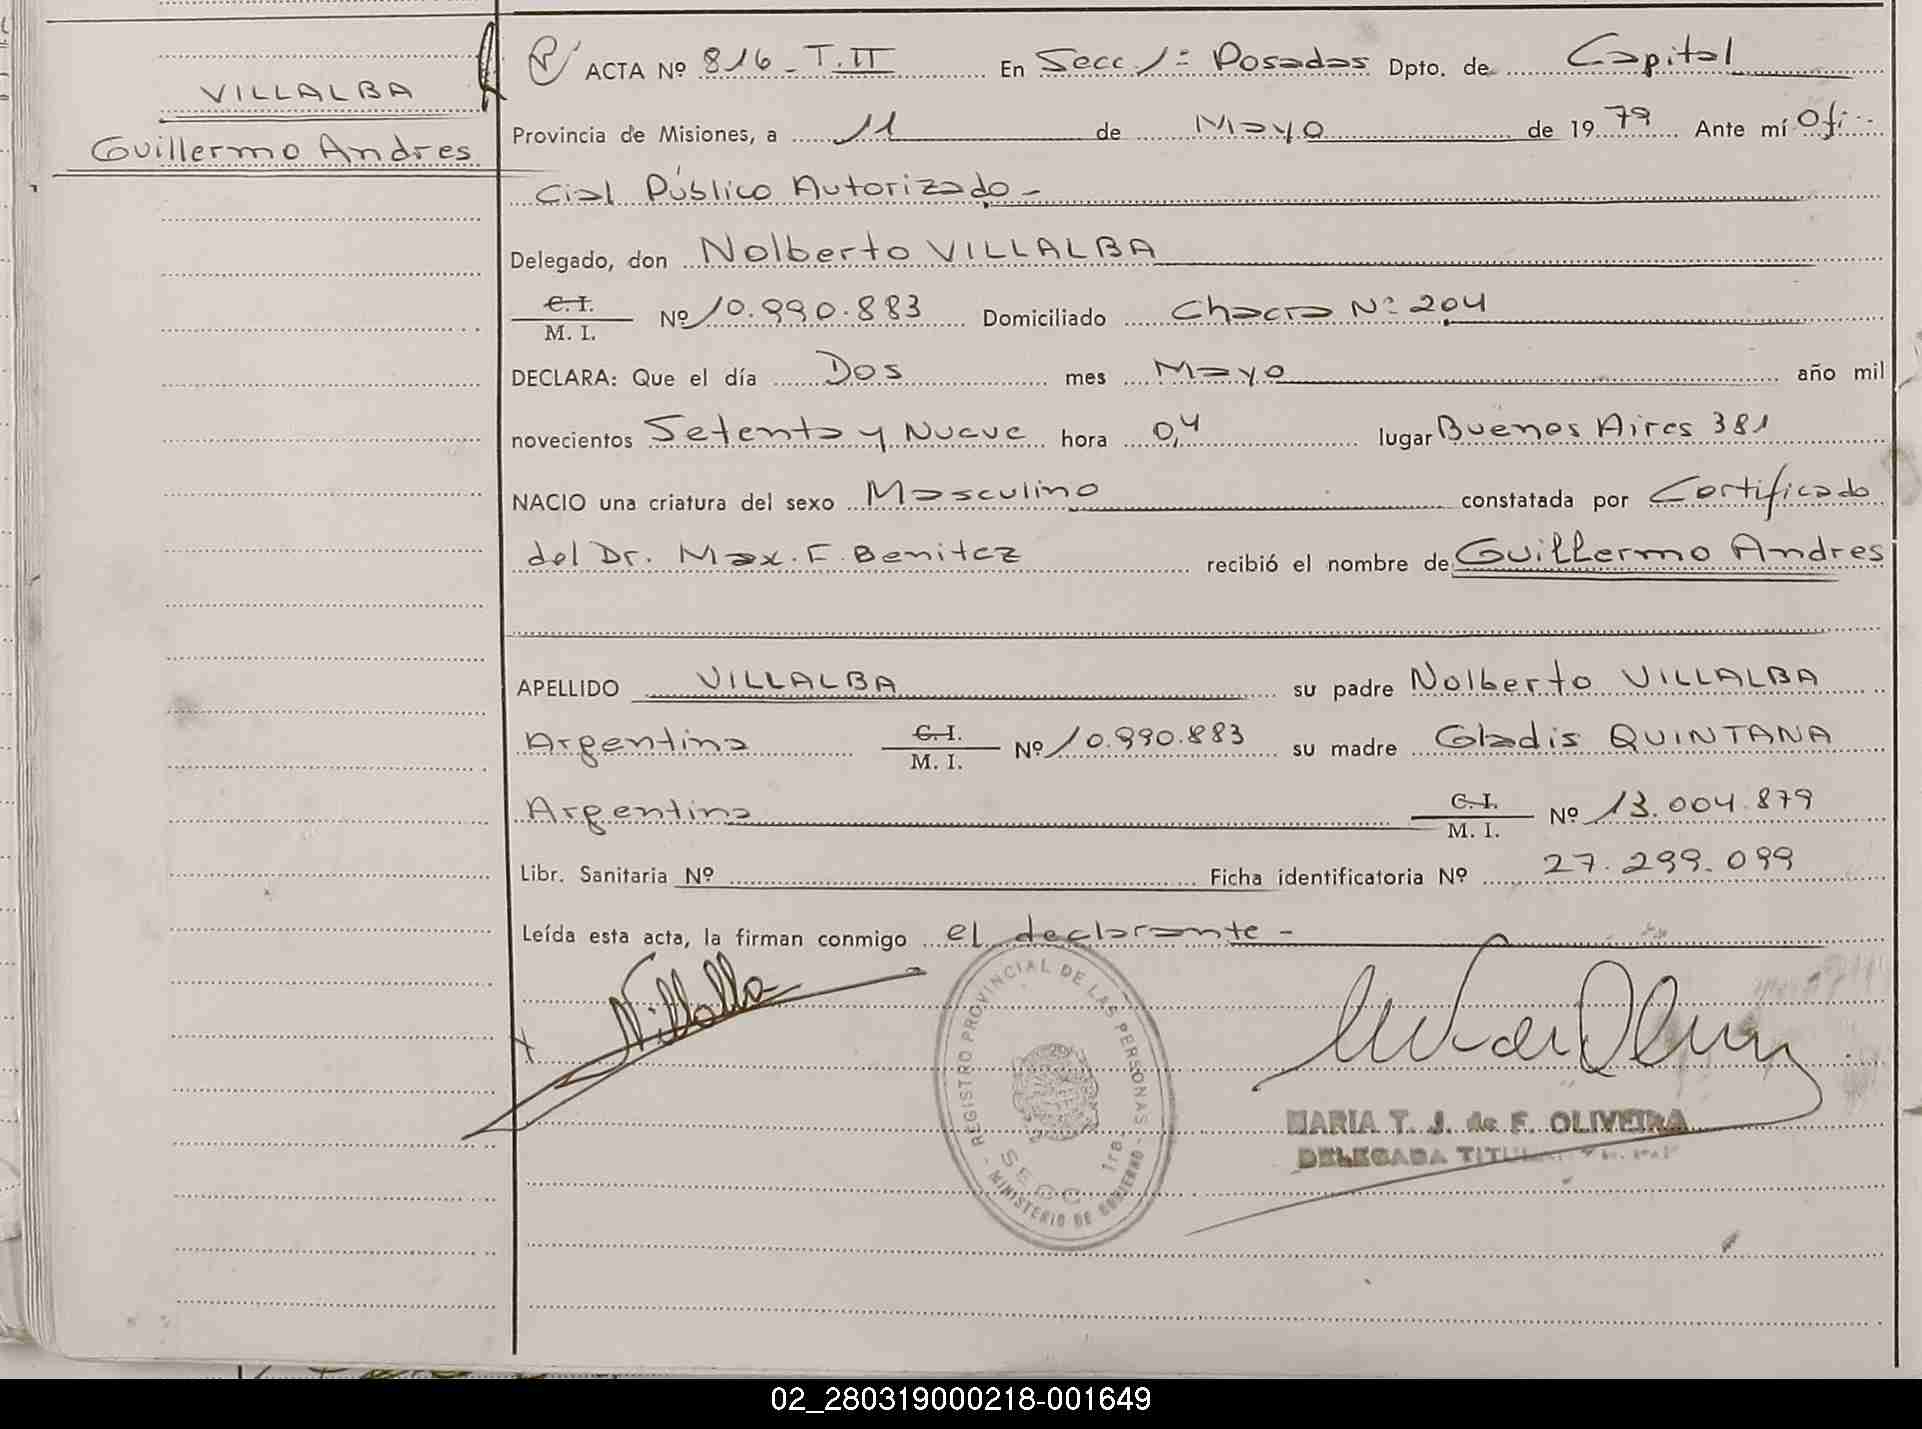 VILLALBA
Guillermo Andres
ACTA Nº 816 - T. II En Secc. 1ª Posadas Dpto. de Capital
Provincia de Misiones, a 11 de Mayo de 1979 Ante mí Ofi-
cial Público Autorizado -
Delegado, don Nolberto VILLALBA
C. I.
M. I. Nº 10.990.883 Domiciliado Chacra Nº 204
DECLARA: Que el día Dos mes Mayo año mil
novecientos Setenta y Nueve hora 0,4 lugar Buenos Aires 381
NACIO una criatura del sexo Masculino constatada por Certificado
del Dr. Max. F. Benitez recibió el nombre de Guillermo Andres
APELLIDO VILLALBA su padre Nolberto VILLALBA
Argentina C. I. M. I. Nº 10.990.883 su madre Gladis QUINTANA
Argentina C. I. M. I. Nº 13.004.879
Libr. Sanitaria Nº Ficha identificatoria Nº 27.299.099
Leída esta acta, la firman conmigo el declarante -
N. Villalba
REGISTRO PROVINCIAL DE LAS PERSONAS - MINISTERIO DE GOBIERNO -
SECC 1ra
MARIA T. J. de F. OLIVEIRA
DELEGADA TITULAR
02_280319000218-001649